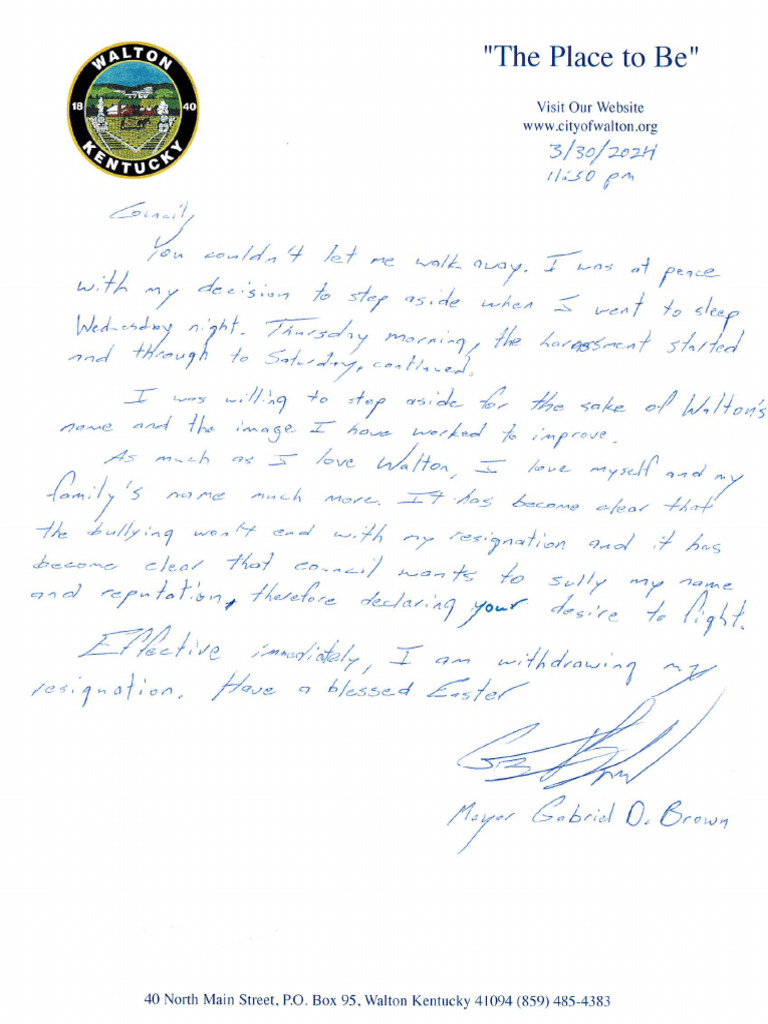 WALTON
18 40
KENTUCKY
"The Place to Be"
Visit Our Website
www.cityofwalton.org
3/30/2024
11:50 pm
Council,
You couldn't let me walk away. I was at peace
with my decision to step aside when I went to sleep
Wednesday night. Thursday morning, the harassment started
and through to Saturday, continued.
I was willing to step aside for the sake of Walton's
name and the image I have worked to improve.
As much as I love Walton, I love myself and my
family's name much more. It has become clear that
the bullying won't end with my resignation and it has
become clear that council wants to sully my name
and reputation, therefore declaring your desire to fight.
Effective immediately, I am withdrawing my
resignation. Have a blessed Easter
Mayor Gabriel D. Brown
40 North Main Street, P.O. Box 95, Walton Kentucky 41094 (859) 485-4383